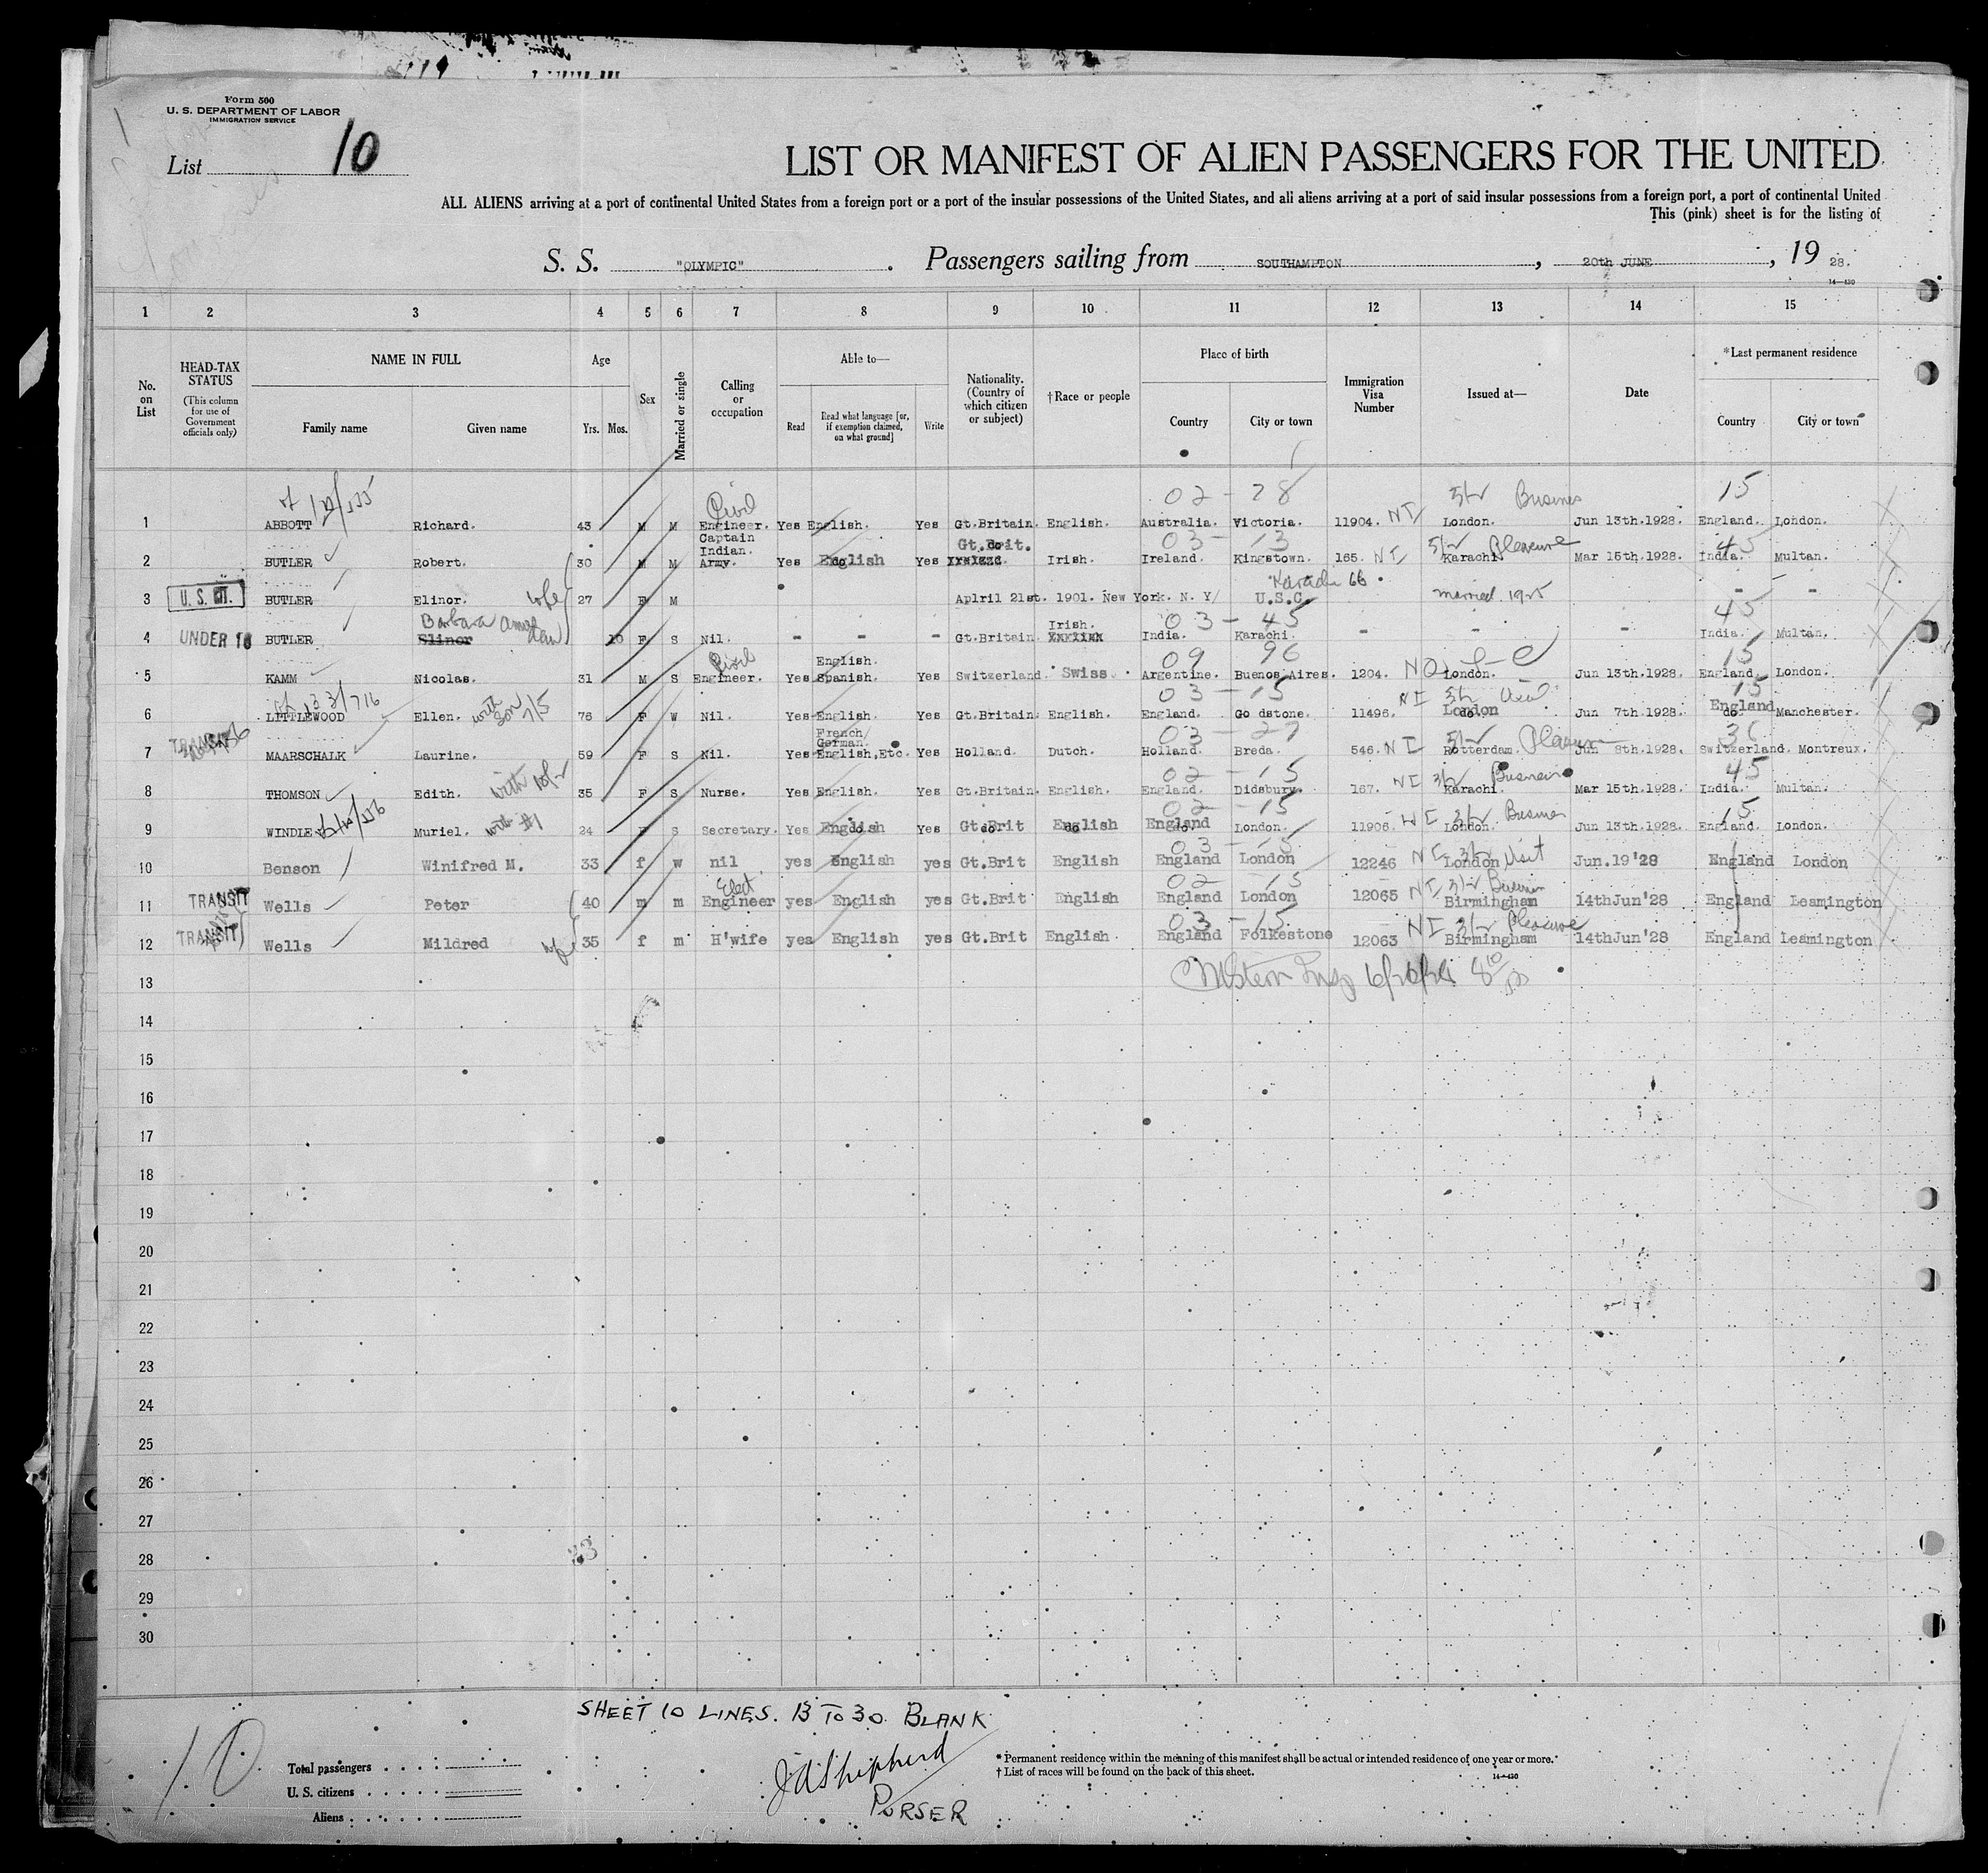 Form 500
U. S. DEPARTMENT OF LABOR
IMMIGRATION SERVICE
List 10
LIST OR MANIFEST OF ALIEN PASSENGERS FOR THE UNITED
ALL ALIENS arriving at a port of continental United States from a foreign port or a port of the insular possessions of the United States, and all aliens arriving at a port of said insular possessions from a foreign port, a port of continental United
This (pink) sheet is for the listing of
S. S. "OLYMPIC". Passengers sailing from SOUTHAMPTON, 20th JUNE, 19 28.
14—430
1 2 3 4 5 6 7 8 9 10 11 12 13 14 15
No. on List
HEAD-TAX STATUS (This column for use of Government officials only)
NAME IN FULL
Family name Given name
Age
Yrs. Mos.
Sex
Married or single
Calling or occupation
Able to—
Read Read what language [or, if exemption claimed, on what ground] Write
Nationality. (Country of which citizen or subject)
†Race or people
Place of birth
Country City or town
Immigration Visa Number
Issued at—
Date
*Last permanent residence
Country City or town
02 - 28 Business 15
Civil
1 ABBOTT Richard. 43 M M Engineer. Yes English. Yes Gt.Britain. English. Australia. Victoria. 11904. NI London. Jun 13th.1928. England. London.
Captain Indian. Gt.Brit. 03 - 13 Pleasure 45
2 BUTLER Robert. 30 M M Army. Yes English Yes Irish. Ireland. Kingstown. 165. NI Karachi. Mar 15th.1928. India. Multan.
Karachi 66
3 U. S. CIT. BUTLER Elinor. wife 27 F M Aplril 21st. 1901. New York. N. Y/ U.S.C. married 1925 - -
Barbara Irish. 03 - 45 45
4 UNDER 16 BUTLER Elinor 10 F S Nil. - - - Gt.Britain English India. Karachi. - - - India. Multan.
Civil English. 09 96 15
5 KAMM Nicolas. 31 M S Engineer. Yes Spanish. Yes Switzerland. Swiss. Argentine. Buenos Aires. 1204. NQ London. Jun 13th.1928. England. London.
133/716 03 - 15 15
6 LITTLEWOOD Ellen. with son 7/5 76 F W Nil. Yes English. Yes Gt.Britain. English. England. Go dstone. 11496. NI London Jun 7th.1928. England Manchester.
French/ German. 03 - 27 Pleasure 36
7 TRANSIT MAARSCHALK Laurine. 59 F S Nil. Yes English,Etc. Yes Holland. Dutch. Holland. Breda. 546. NI Rotterdam. Jun 8th.1928. Switzerland. Montreux.
02 - 15 Business 45
8 THOMSON Edith. 35 F S Nurse. Yes English. Yes Gt.Britain. English. England. Didsbury. 167. NI Karachi. Mar 15th.1928. India. Multan.
02 - 15 Business 15
9 WINDLE Muriel. with #1 24 F S Secretary. Yes English Yes Gt.Brit English England London. 11906. NI London. Jun 13th.1928. England. London.
03 - 15
10 Benson Winifred M. 33 f w nil yes English yes Gt.Brit English England London 12246 NI London Visit Jun.19'28 England London
Elect. 02 - 15 Business
11 TRANSIT Wells Peter 40 m m Engineer yes English yes Gt.Brit English England London 12065 NI Birmingham 14thJun'28 England Leamington
03 - 15 Pleasure
12 TRANSIT Wells Mildred wife 35 f m H'wife yes English yes Gt.Brit English. England Folkestone 12063 NI Birmingham 14thJun'28 England Leamington
13
14
15
16
17
18
19
20
21
22
23
24
25
26
27
28
29
30
SHEET 10 LINES. 13 TO 30. BLANK
J A Shepherd
PURSER
10
Total passengers
U. S. citizens
Aliens
* Permanent residence within the meaning of this manifest shall be actual or intended residence of one year or more.
† List of races will be found on the back of this sheet.
14—430